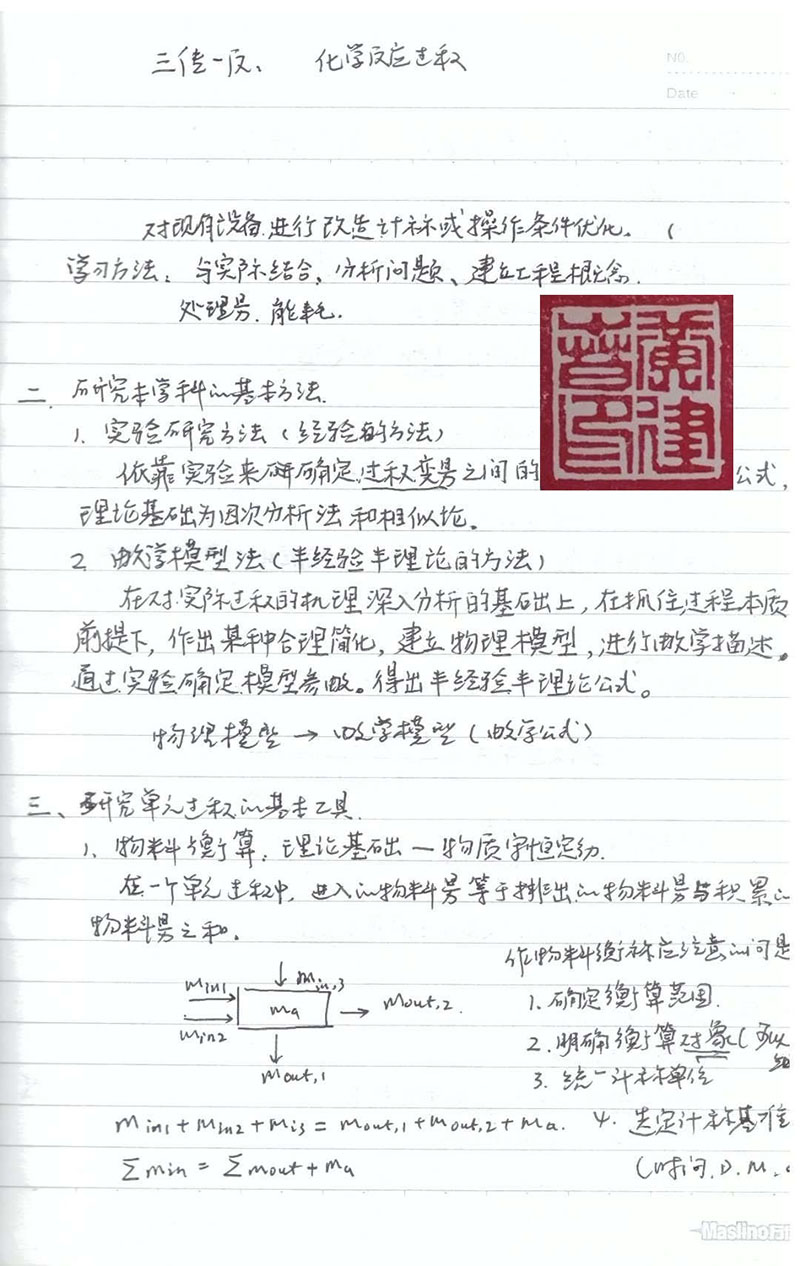 三传一反、 化学反应过程
No.
Date
对现有设备进行改造计算或操作条件优化。（
学习方法：与实际结合，分析问题、建立工程概念.
处理量.能耗.
二. 研究本学科的基本方法.
1. 实验研究方法（经验的方法）
依靠实验来确定过程变量之间的 公式，
理论基础为因次分析法和相似论。
2. 数学模型法（半经验半理论的方法）
在对实际过程的机理深入分析的基础上，在抓住过程本质
前提下，作出某种合理简化，建立物理模型，进行数学描述。
通过实验确定模型参数。得出半经验半理论公式。
物理模型 → 数学模型（数学公式）
三、研究单元过程的基本工具.
1. 物料衡算：理论基础 — 物质守恒定
在一个单元过程中，进入的物料量等于排出的物料量与积累的
物料量之和.
作物料衡算应注意的问题
min1 ↓ min,3
ma → mout,2. 1. 确定衡算范围.
min2 2. 明确衡算对象（可以
mout,1 3. 统一计算单位
min1 + min2 + mi3 = mout,1 + mout,2 + ma. 4. 选定计算基准
∑min = ∑mout + ma （时间.D.M.
Maslino